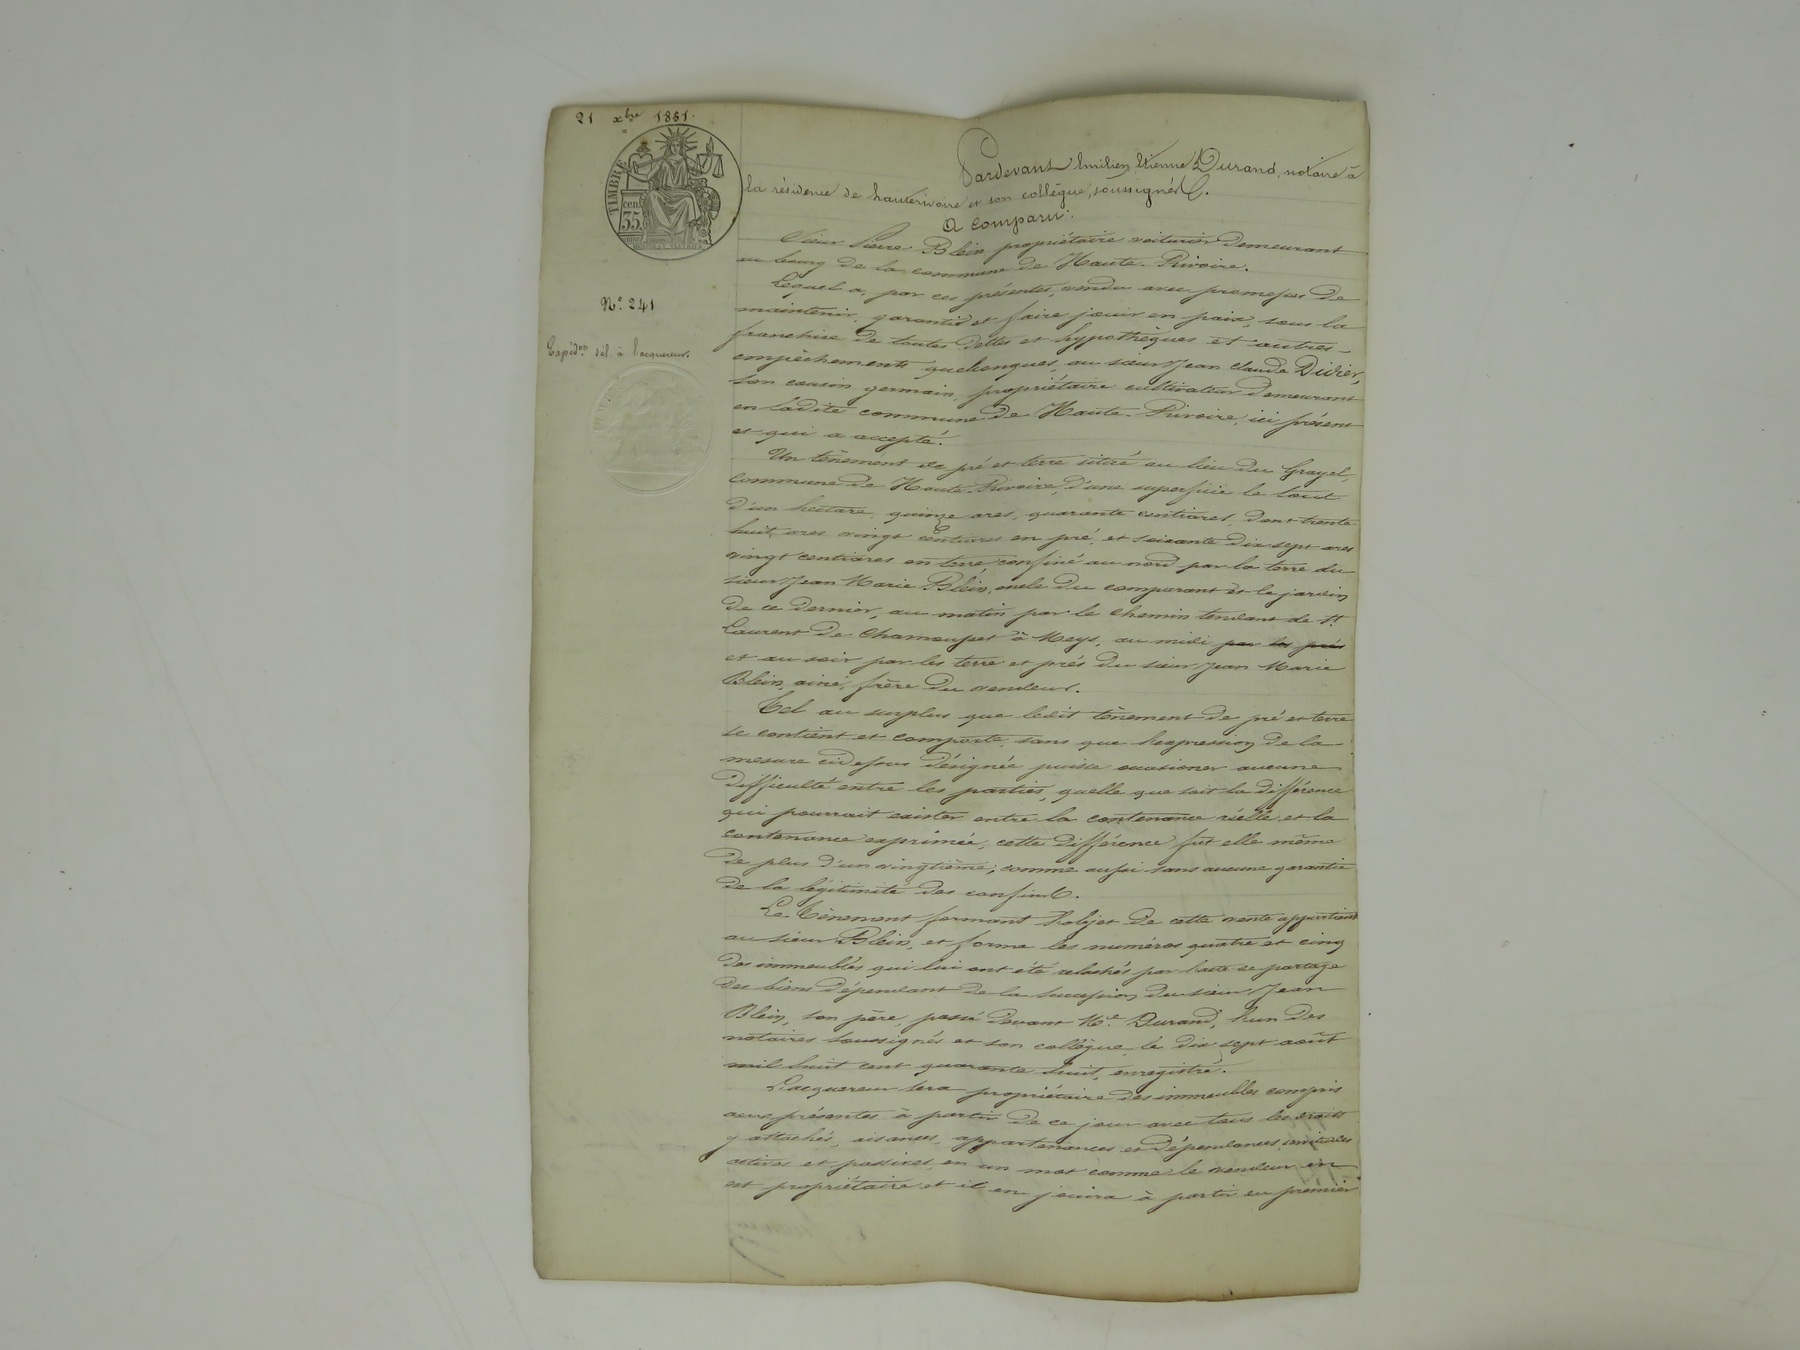 21 xbre 1851.
TIMBRE
cen.
35
Pardevant Emilien Etienne Durand, notaire à
la résidence de hauterivoire et son collègue, soussignés.
A Comparu:
N.o 241
Sieur Pierre Blein propriétaire voiturier demeurant
au bourg de la commune de Haute-Rivoire.
Lequel a, par ces présentes, vendu avec promesses de
maintenir, garantir et faire jouir en paix, sous la
franchise de toutes dettes et hypothèques et autres
Expédon dél. à l'acquereur.
empêchements quelconques, au sieur Jean Claude Didier,
son cousin germain, propriétaire cultivateur demeurant
en ladite commune de Haute-Rivoire, ici présent
et qui a accepté.
Un tènement de pré et terre situé au lieu du Grayel,
commune de Haute-Rivoire, d'une superficie le tout
d'un hectare, quinze ares, quarante centiares, dont trente
huit ares vingt centiares en pré, et soixante dix sept ares
vingt centiares en terre, confiné au nord par la terre du
sieur Jean Marie Blein, oncle du comparant et le jardin
de ce dernier, au matin par le chemin tendant de St.
Laurent de Chamousset à Meys, au midi par les prés
et au soir par les terre et prés du sieur Jean Marie
Blein, ainé, frère du vendeur.
Tel au surplus que ledit tènement de pré et terre
se contient et comporte, sans que l'expression de la
mesure cidessus désignée puisse occasioner aucune
difficulté entre les parties, quelle que soit la différence
qui pourrait exister entre la contenance réelle et la
contenance exprimée, cette différence fut elle même
de plus d'un vingtième; comme aussi sans aucune garantie
de la légitimité des confins.
Le tènement formant l'objet de cette vente appartient
au sieur Blein, et forme les numéros quatre et cinq
des immeubles qui lui ont été relachés par l'acte de partage
des biens dépendant de la succession du sieur Jean
Blein, son père, passé devant Me. Durand, l'un des
notaires soussignés et son collègue, le dix sept août
mil huit cent quarante huit, enregistré.
L'acquereur sera propriétaire des immeubles compris
aux présentes à partir de ce jour avec tous les droits
y attachés, aisances, appartenances et dépendances, servitudes
actives et passives, en un mot comme le vendeur en
est propriétaire et il en jouira à partir du premier